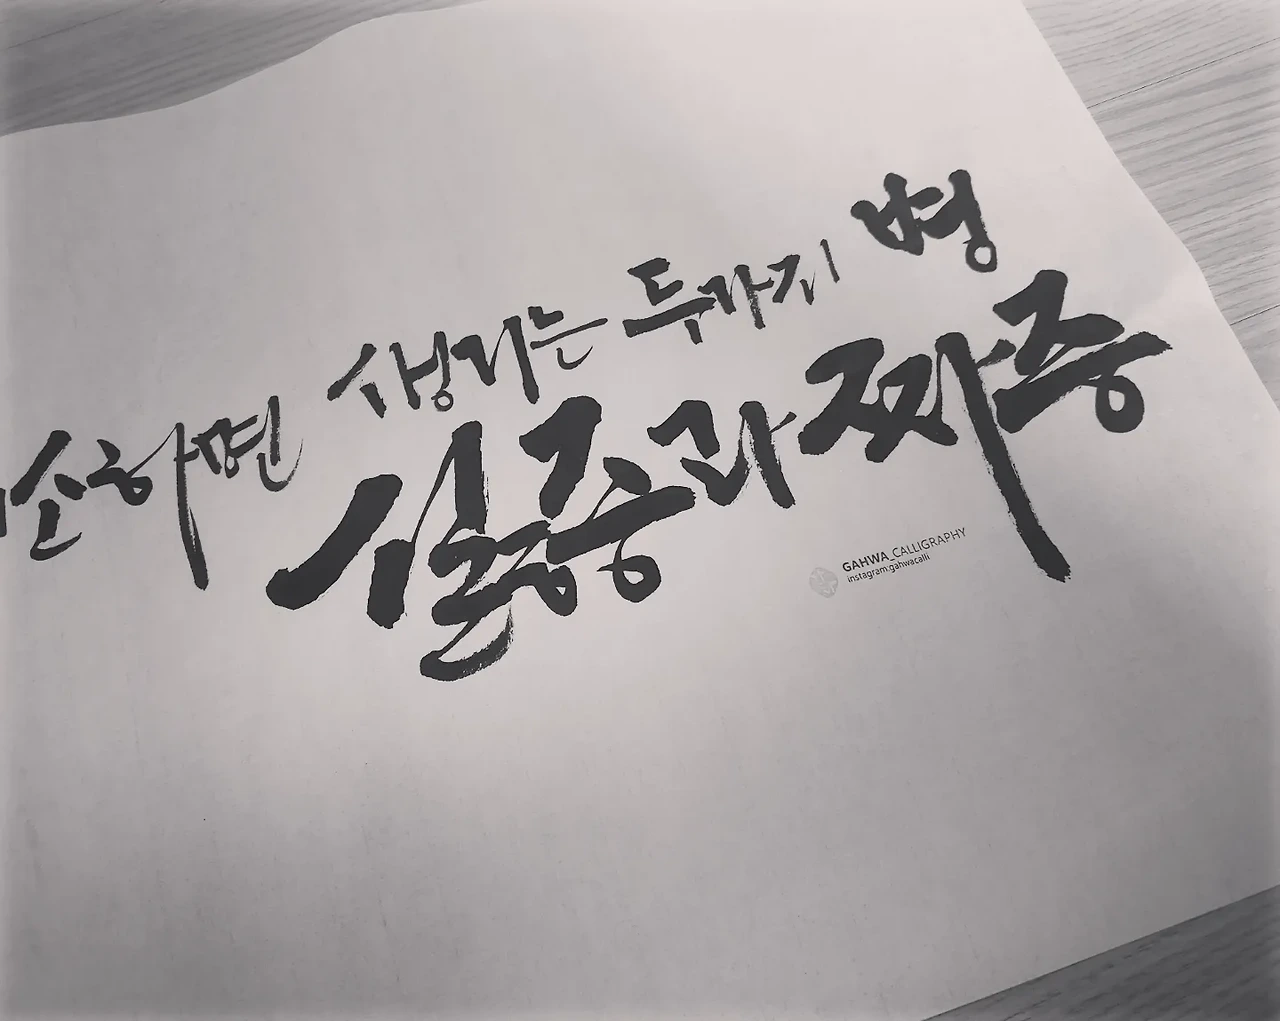 소하면 생기는 두가지 병
싫증과 짜증
GAHWA_CALLIGRAPHY
instagram:gahwacalli